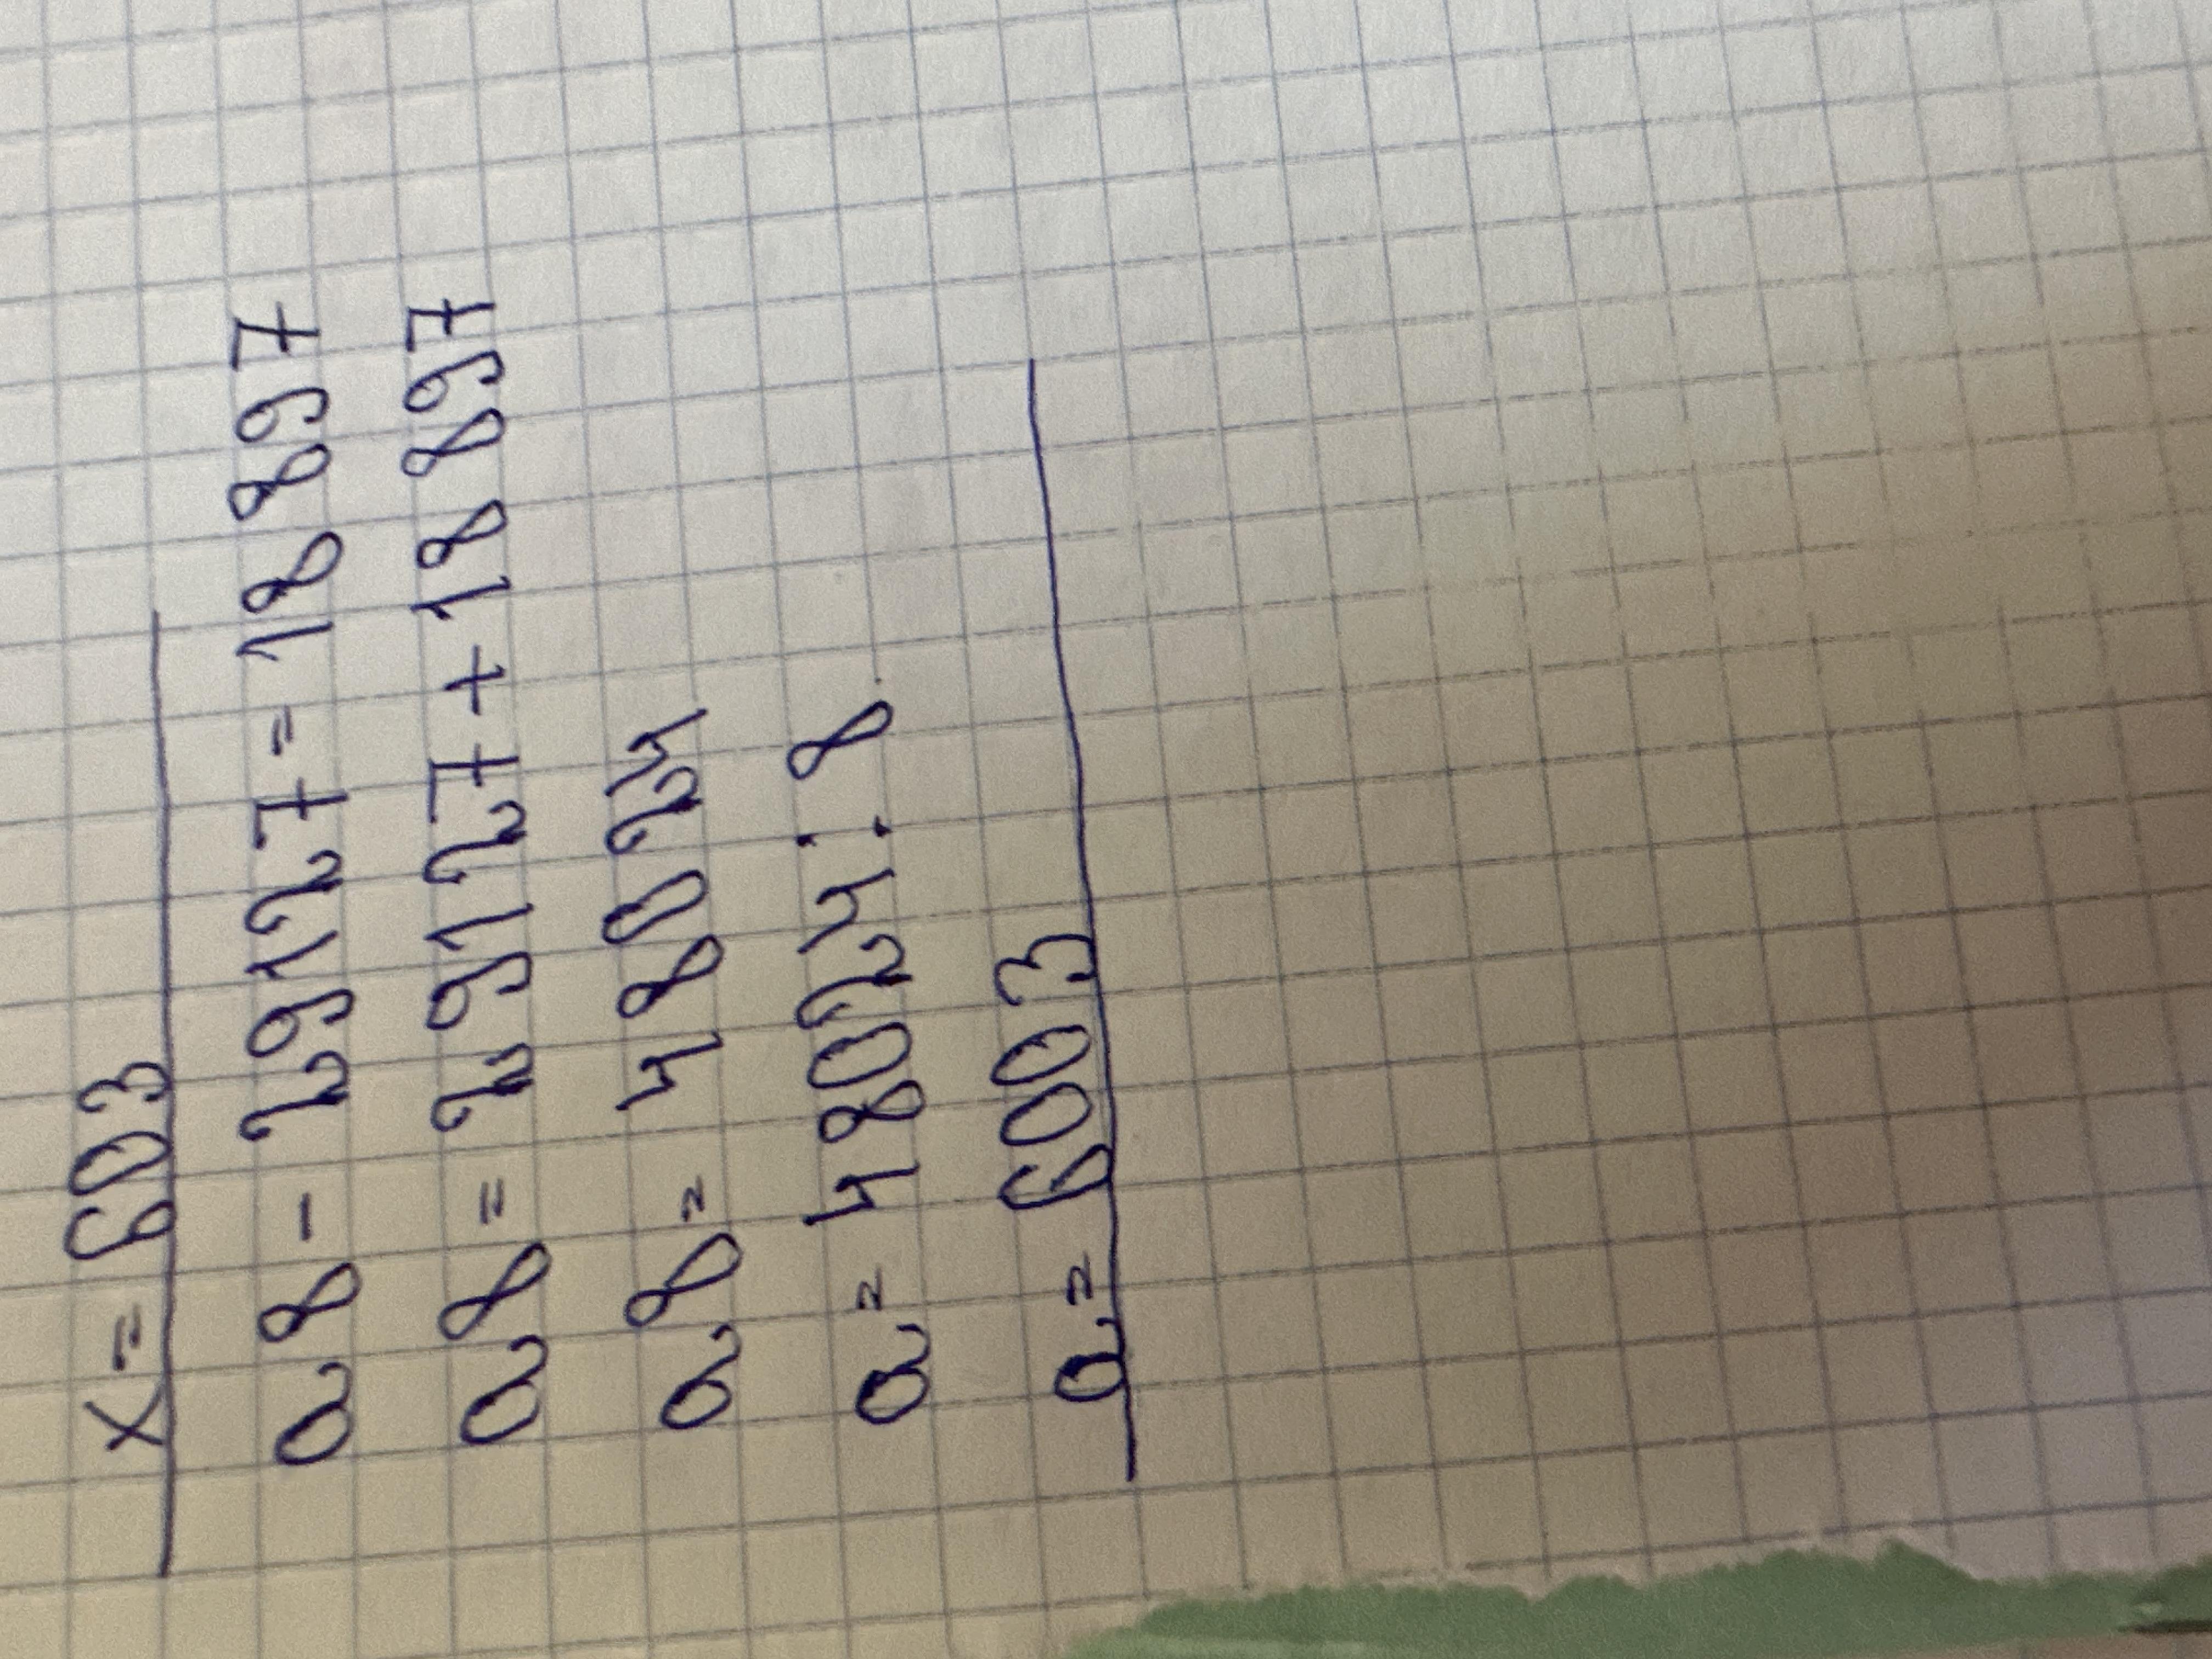 x = 603
a 8 - 29127 = 18 897
a 8 = 29127 + 18 897
a 8 = 48024
a = 48024 : 8
a = 6003